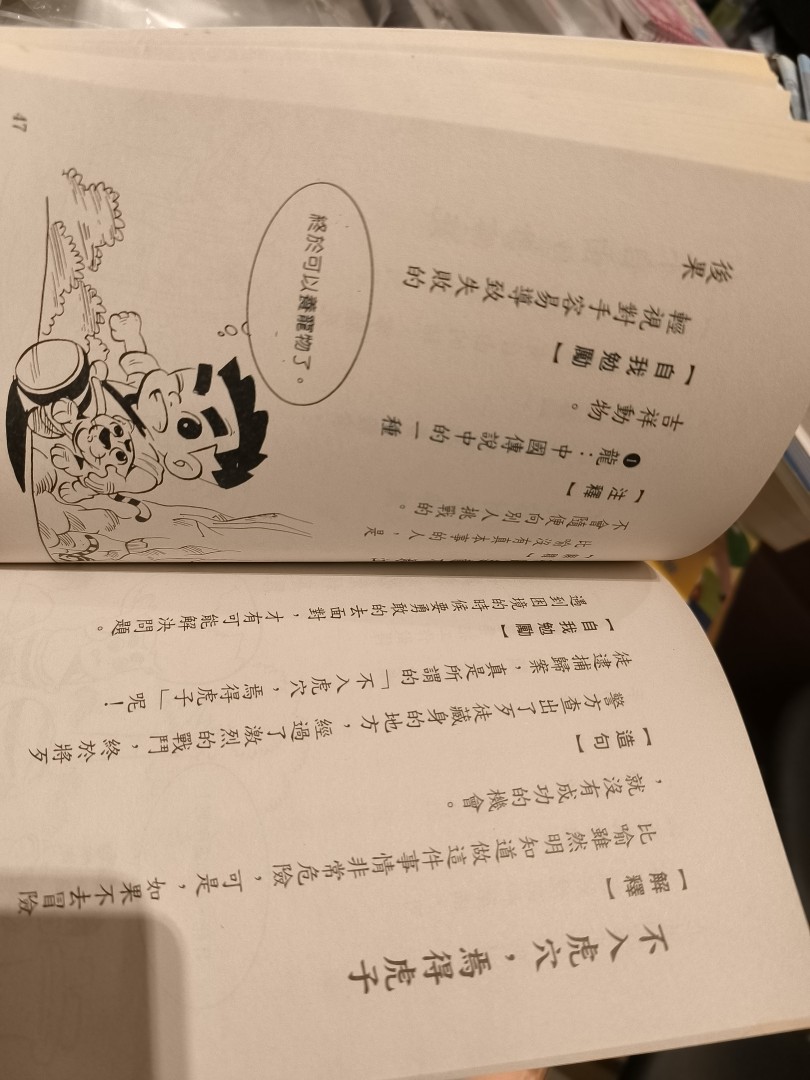 不入虎穴，焉得虎子
【解釋】
比喻雖然明知道做這件事情非常危險，可是，如果不去冒險
，就沒有成功的機會。
【造句】
警方查出了歹徒藏身的地方，經過了激烈的戰鬥，終於將歹
徒逮捕歸案，真是所謂的「不入虎穴，焉得虎子」呢！
【自我勉勵】
遇到困境的時候要勇敢的去面對，才有可能解決問題。
比喻沒有真本事的人，是
不會隨便向別人挑戰的。
【注釋】
❶龍：中國傳說中的一種
吉祥動物。
【自我勉勵】
輕視對手容易導致失敗的
後果
終於可以養寵物了。
47